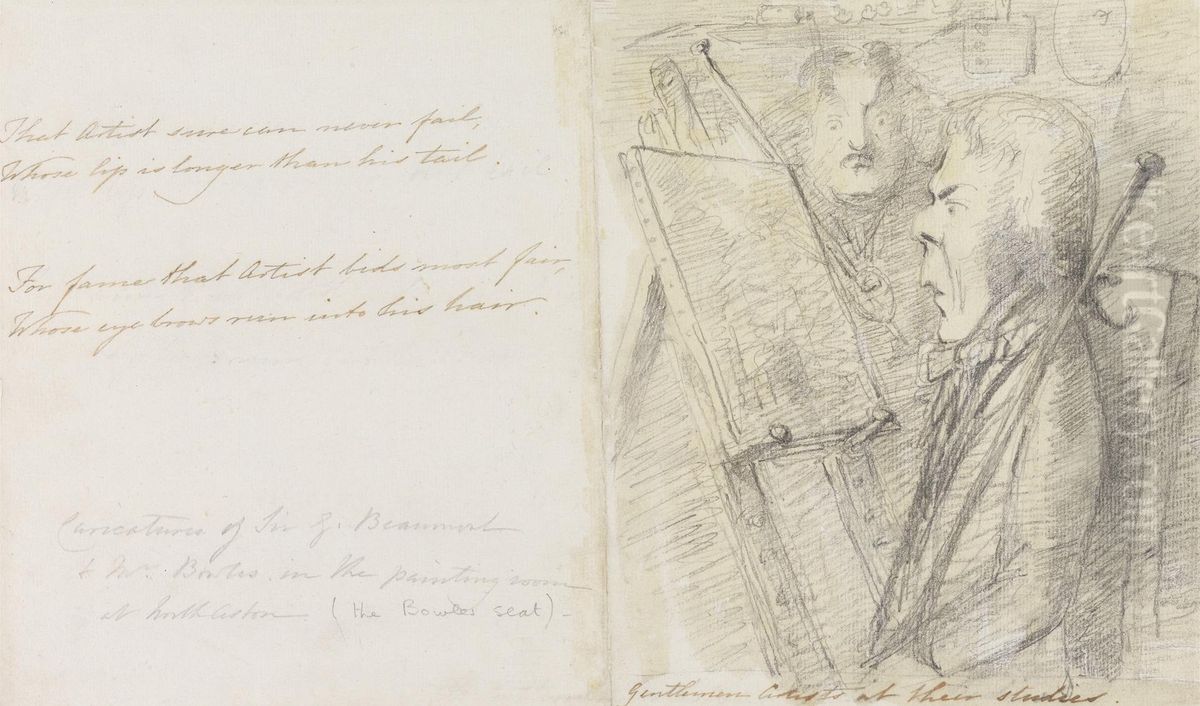 That Artist sure can never fail,
Whose lip is longer than his tail.
For fame that Artist bids most fair,
Whose eye brows run into his hair.
Caricatures of Sir G. Beaumont
& Mr. Bowles in the painting room
at North Aston (the Bowles seat) -
Gentlemen Artists at their studies.